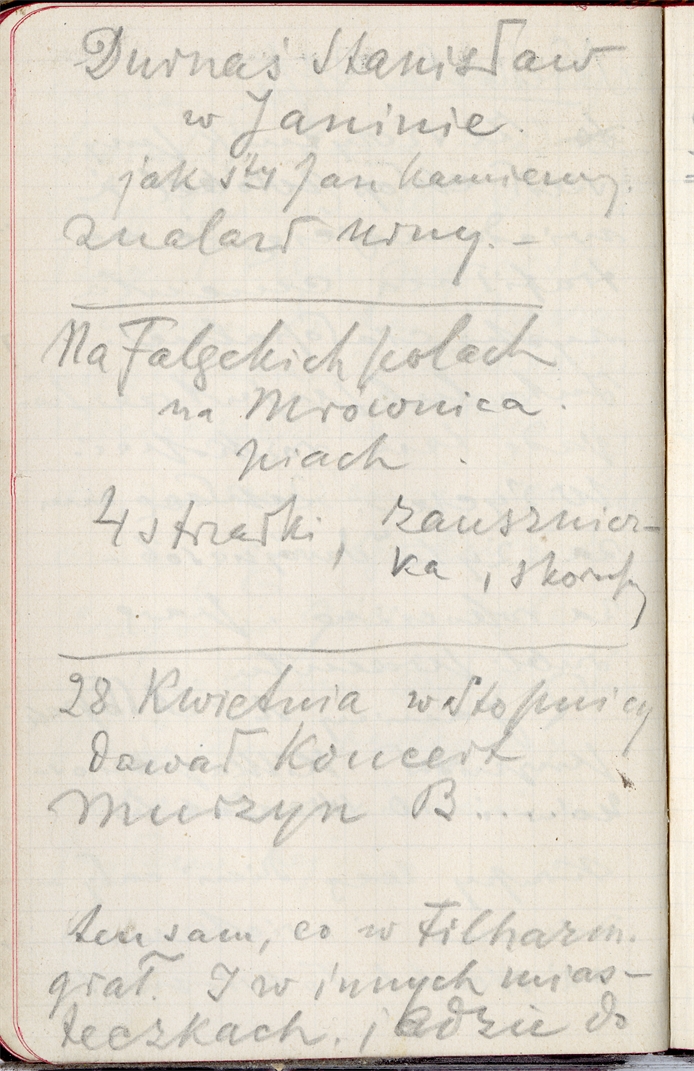 Durnaś Stanisław
w Janinie.
jak s'ty Jan kamienny.
znalazł urny. –
Na Falęckich polach
na Mrowonica
piach.
4 strzałki, zausznicz-
ka, skorupy
28 Kwietnia w Stopnicy
dawał Koncert
Murzyn B....
ten sam, co w Filharm.
grał. I w innych mias-
teczkach. jedzie do